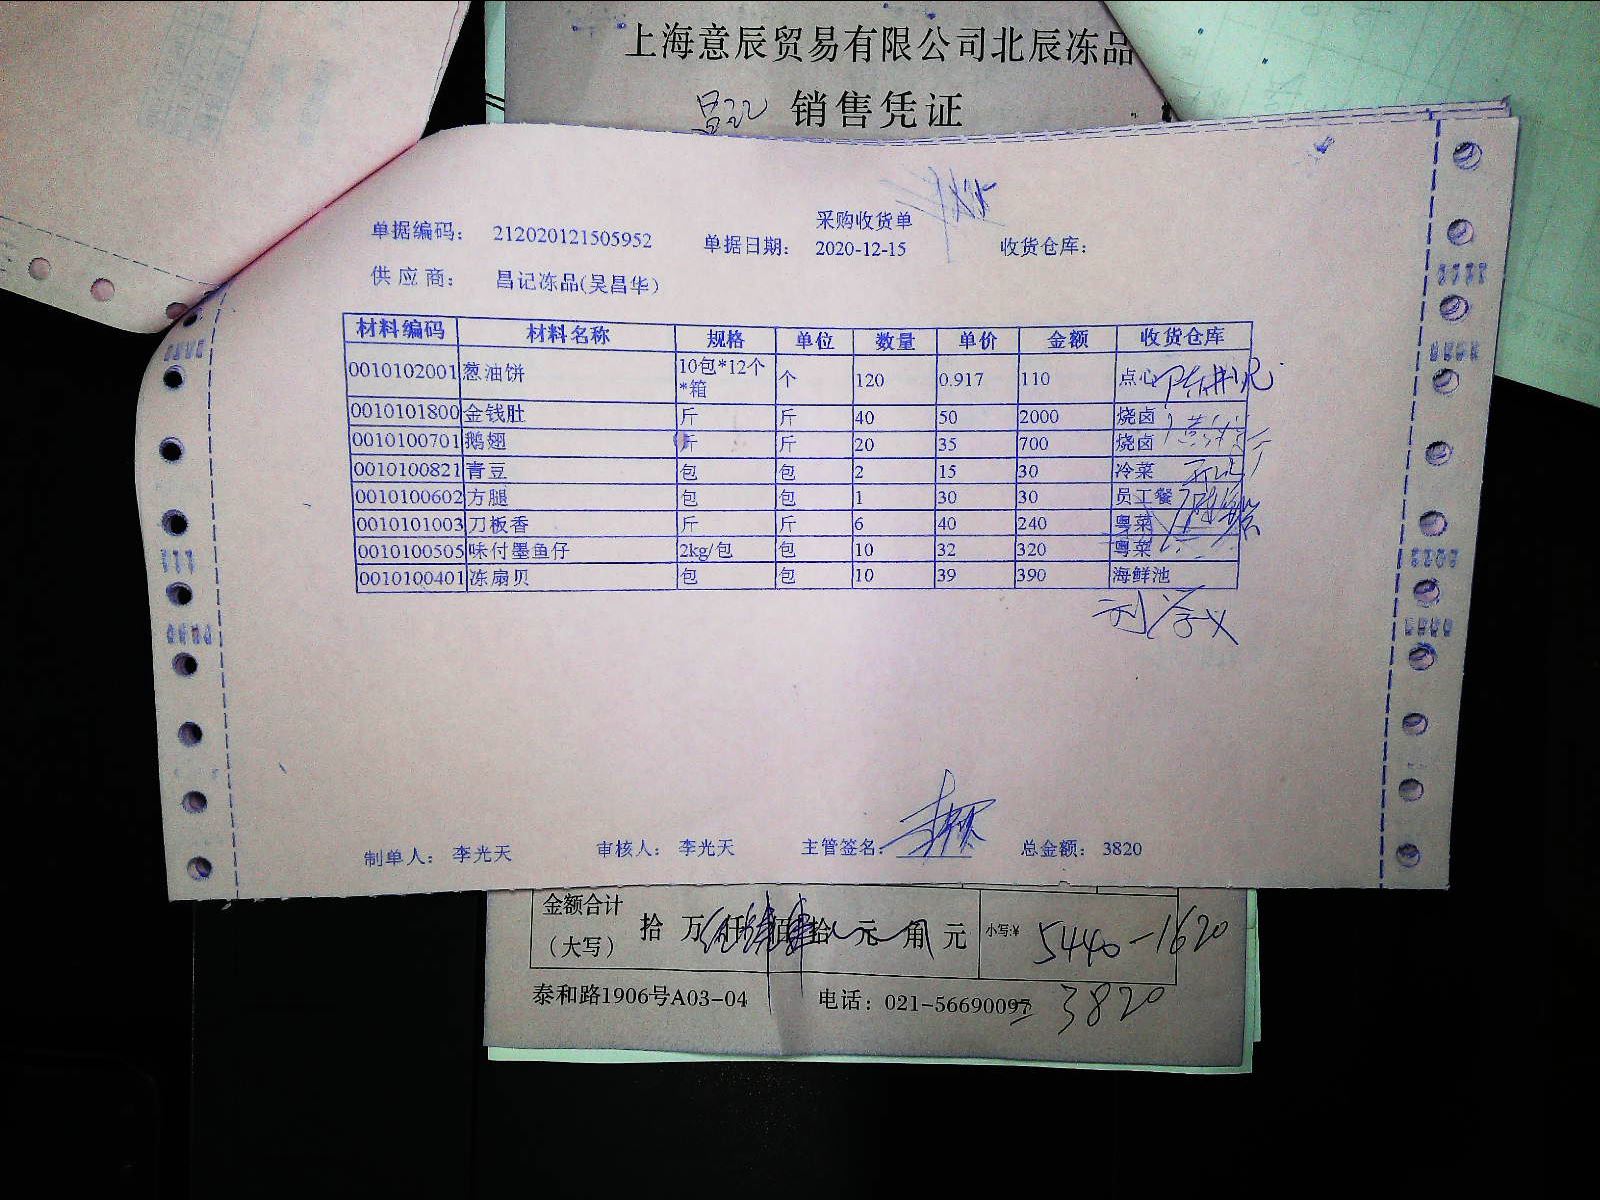 上海意辰贸易有限公司北辰冻品
昌记 销售凭证
采购收货单
单据编码： 212020121505952 单据日期： 2020-12-15 收货仓库：
供应商： 昌记冻品(吴昌华)
材料编码 材料名称 规格 单位 数量 单价 金额 收货仓库
0010102001 葱油饼 10包*12个*箱 个 120 0.917 110 点心
0010101800 金钱肚 斤 斤 40 50 2000 烧卤
0010100701 鹅翅 斤 斤 20 35 700 烧卤
0010100821 青豆 包 包 2 15 30 冷菜
0010100602 方腿 包 包 1 30 30 员工餐
0010101003 刀板香 斤 斤 6 40 240 粤菜
0010100505 味付墨鱼仔 2kg/包 包 10 32 320 粤菜
0010100401 冻扇贝 包 包 10 39 390 海鲜池
制单人： 李光天 审核人： 李光天 主管签名： 总金额： 3820
金额合计（大写） 拾 万 仟 佰 拾 元 角 元 小写:¥ 5440-1620
泰和路1906号A03-04 电话：021-56690097 = 3820